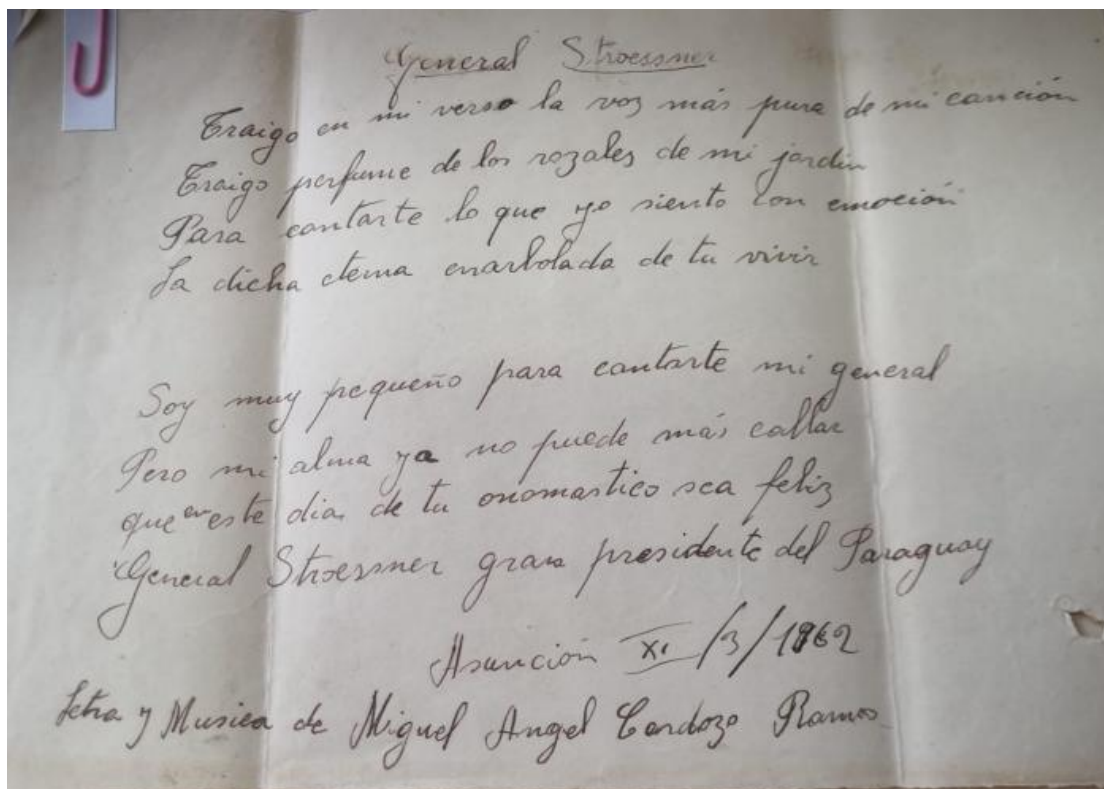 General Stroessner
Traigo en mi verso la voz más pura de mi canción
Traigo perfume de los rozales de mi jardin
Para cantarte lo que yo siento con emoción
La dicha eterna enarbolada de tu vivir
Soy muy pequeño para cantarte mi general
Pero mi alma ya no puede más callar
que en este dia de tu onomastico sea feliz
General Stroessner gran presidente del Paraguay
Asunción XI/3/1962
Letra y Musica de Miguel Angel Cardozo Ramos